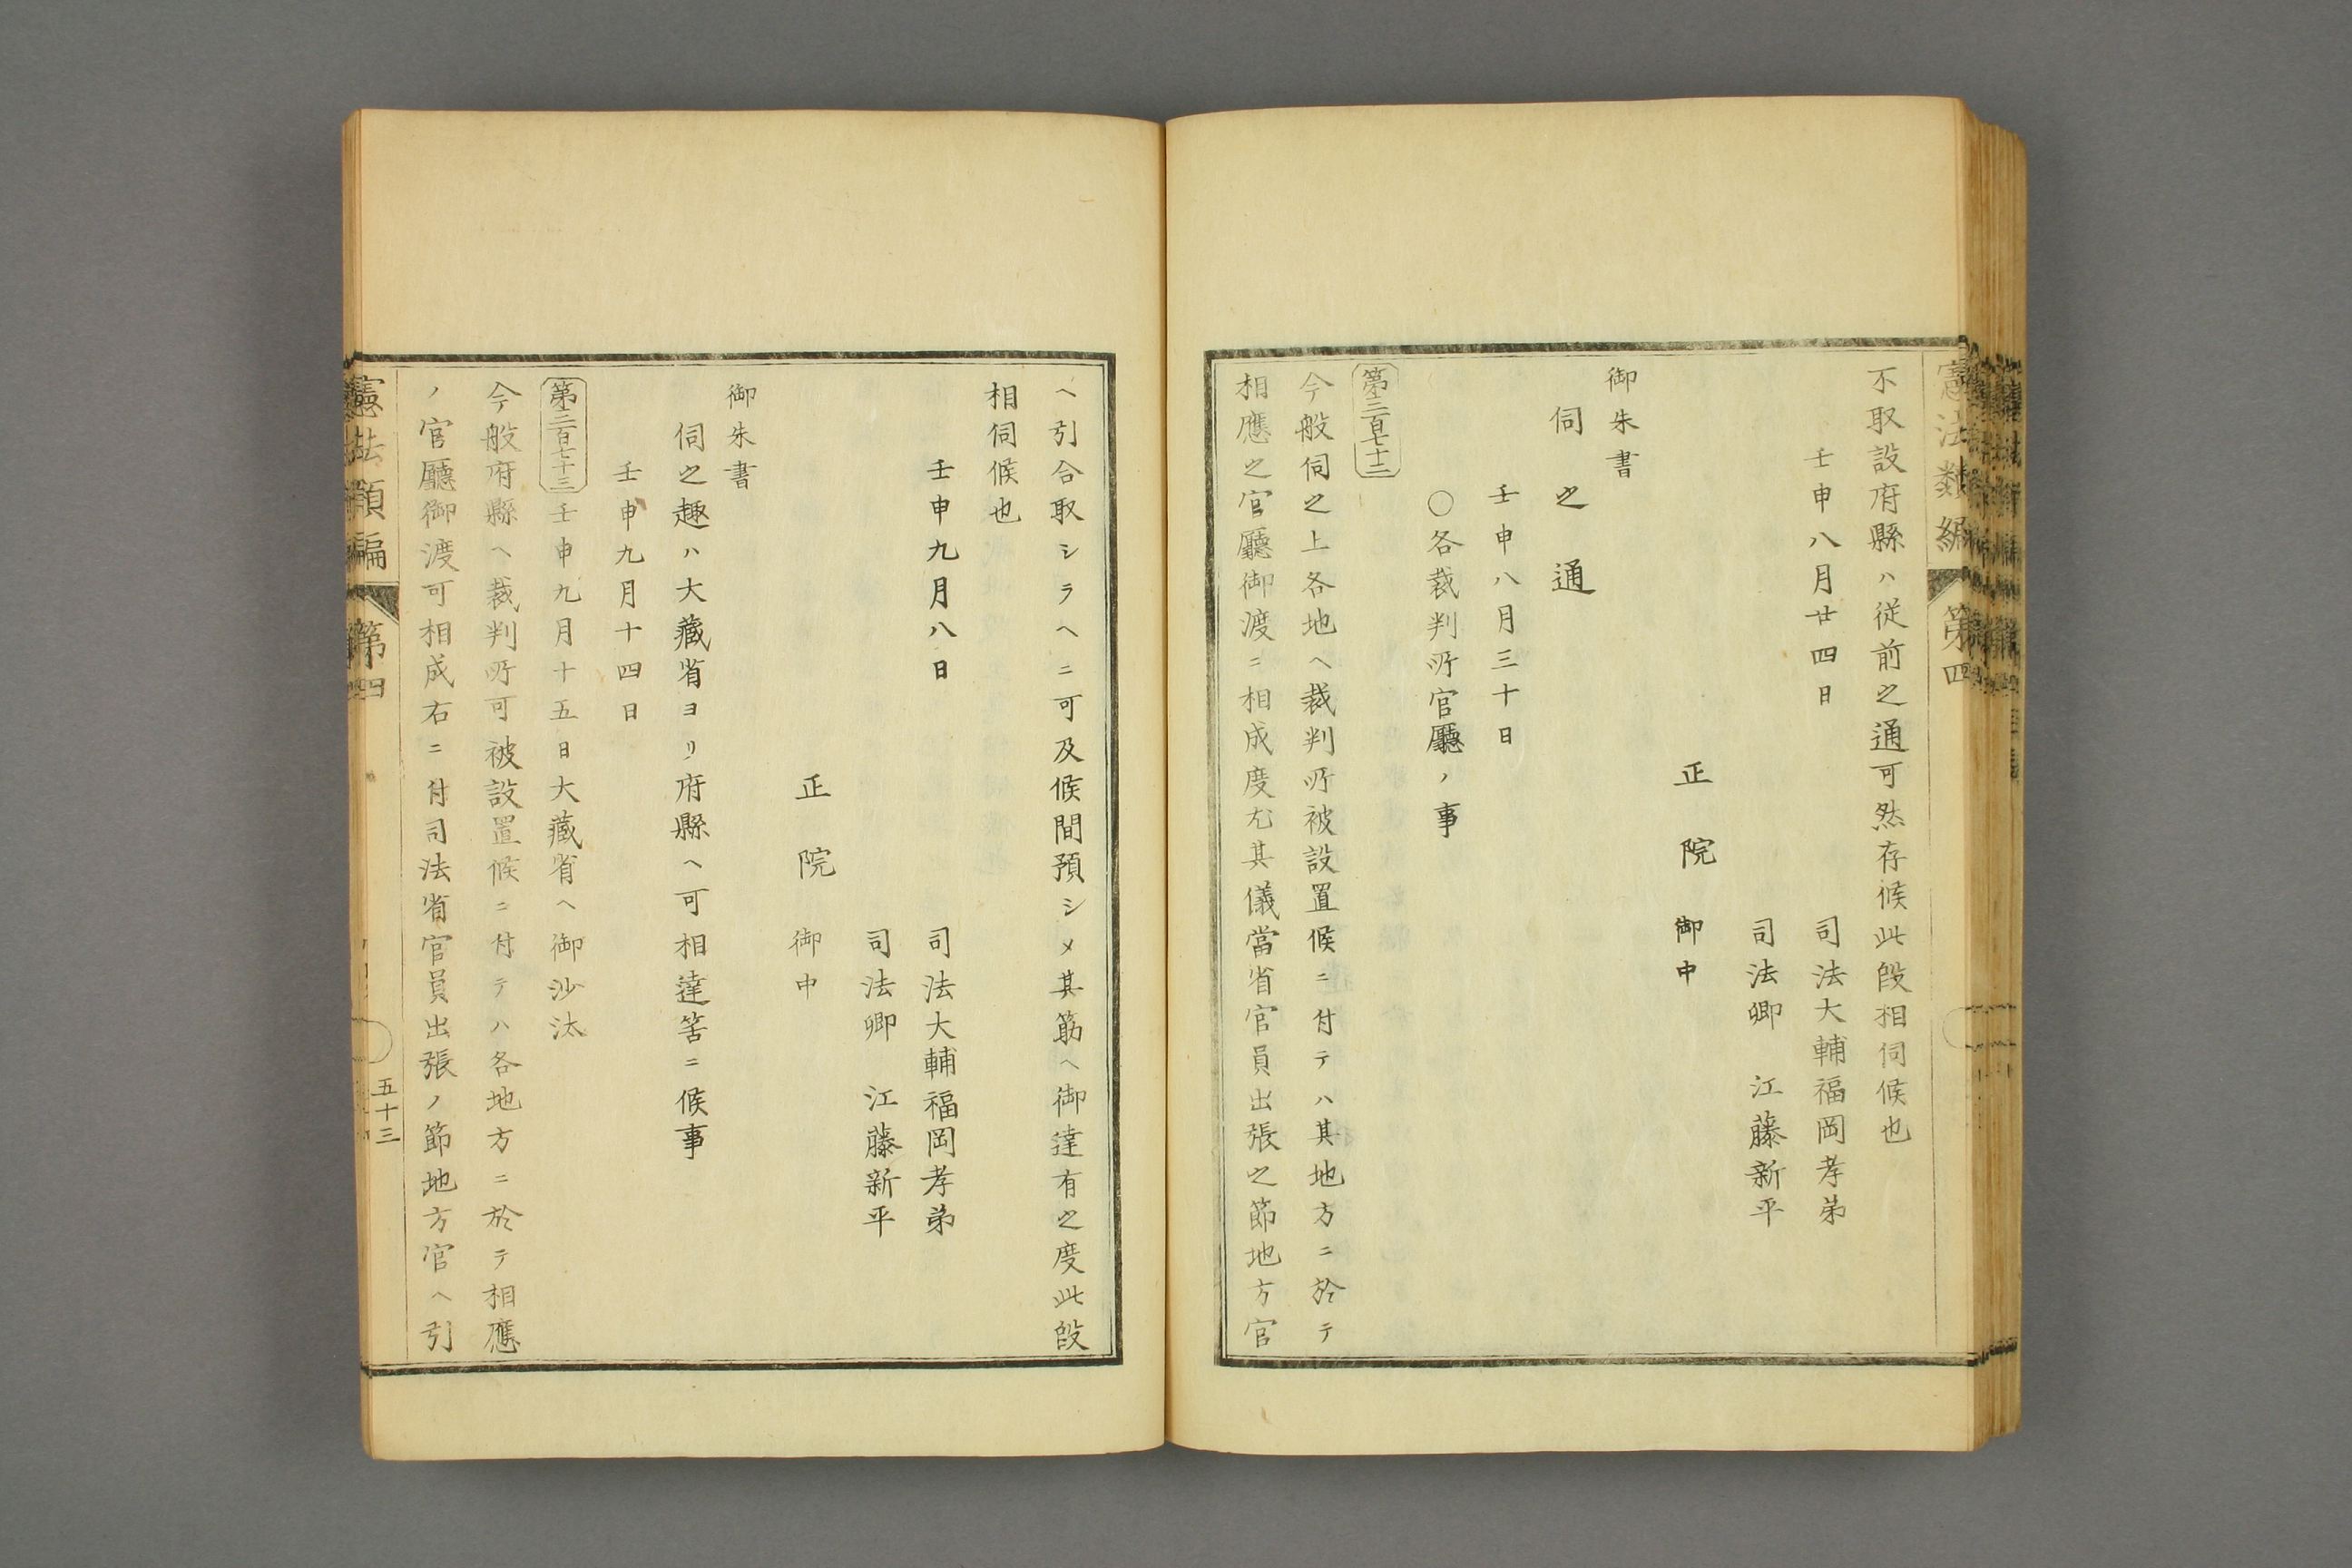 憲法類編 第四
不取設府縣ハ従前之通可然存候此段相伺候也
壬申八月廿四日
司法大輔福岡孝弟
司法卿 江藤新平
正院 御中
御朱書
伺之通
壬申八月三十日
○各裁判所官廳ノ事
第三百七十二
今般伺之上各地ヘ裁判所被設置候ニ付テハ其地方ニ於テ
相應之官廳御渡ニ相成度尤其儀當省官員出張之節地方官
ヘ引合取シラヘニ可及候間預シメ其筋ヘ御達有之度此段
相伺候也
壬申九月八日
司法大輔福岡孝弟
司法卿 江藤新平
正院 御中
御朱書
伺之趣ハ大藏省ヨリ府縣ヘ可相達筈ニ候事
壬申九月十四日
第三百七十三 壬申九月十五日大藏省ヘ御沙汰
今般府縣ヘ裁判所可被設置候ニ付テハ各地方ニ於テ相應
ノ官廳御渡可相成右ニ付司法省官員出張ノ節地方官ヘ引
憲法類編 第四 五十三